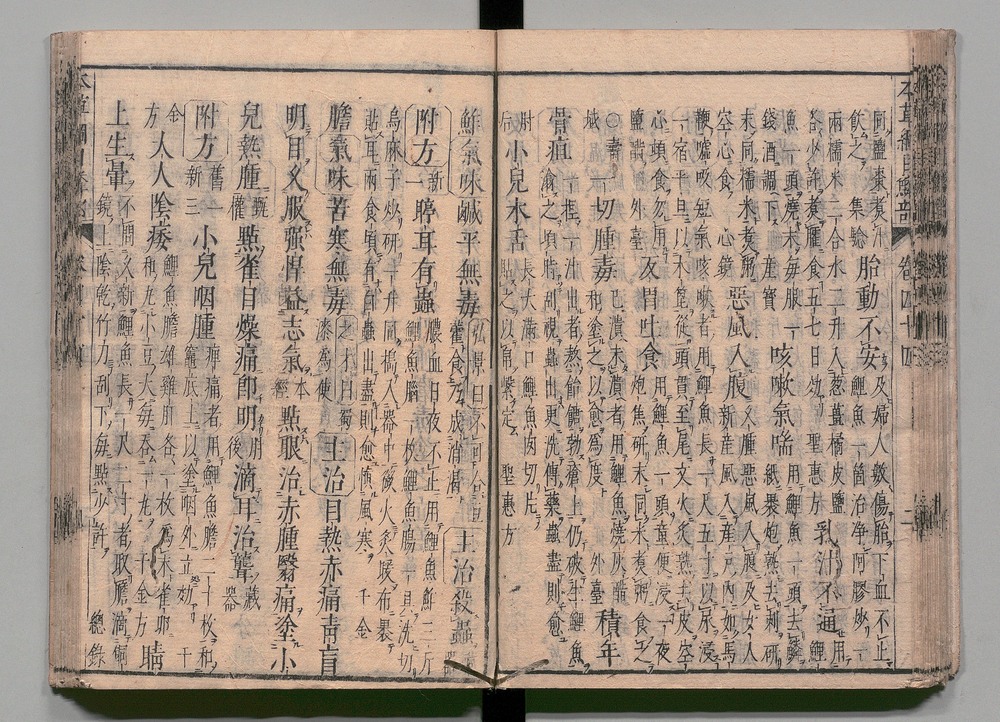 阿鹽棗煮汁飲之 集驗 胎動不安 及婦人數傷胎下血不止鯉魚一箇治净阿膠炒一
兩糯米二合水二升入葱薑橘皮鹽各少許煮臛食五七日效 聖惠方 乳汁不通 用鯉
魚一頭燒末每服一錢酒調下 產寶 咳嗽氣喘 用鯉魚一頭去鱗紙裹炮熟去刺研
末同糯米煮粥空心食 心鏡 惡風入腹 久腫惡風入腹及女人新產風入產戶内如馬
鞭噓吸短氣咳嗽者用鯉魚長一尺五寸以尿浸一宿平旦以木篦從頭貫至尾文火炙熟去皮空
心頓食勿用鹽 外臺 反胃吐食 用鯉魚一頭童便浸一夜炮焦研末同米煮粥食之
○壽域 一切腫毒 已潰未潰者用鯉魚燒灰醋和塗之以愈爲度 外臺 積年
骨疽 一捏一汁出者熬飴糖勃瘡上仍破生鯉魚貪之頃時刮視蟲出更洗傅藥蟲盡則愈
肘后 小兒木舌 長大滿口鯉魚肉切片貼之以帛繫定 聖惠方
鮓氣味鹹平無毒 弘景曰不可合豆藿食乃成消渴 主治殺蟲 藏器
附方 新一 聤耳有蟲 膿血日夜不止用鯉魚鮓三斤鯉魚腦一枚鯉魚腸一具洗切
烏麻子炒研一升同搗入器中微火炙暖布裹貼耳兩食頃有白蟲出盡則愈慎風寒 千金
膽氣味苦寒無毒 之才曰蜀漆爲使 主治目熱赤痛青盲
明目久服强悍益志氣 本經 點眼治赤腫翳痛塗小
兒熱腫 甄權 點雀目燥痛即明 肘後 滴耳治聾 藏器
附方 舊一新三 小兒咽腫 痺痛者用鯉魚膽二十枚和竈底土以塗咽外立效 千
金方 大人陰痿 鯉魚膽雄雞肝各一枚爲末雀卵和丸小豆大每吞一丸 千金方 睛
上生暈 不問久新鯉魚長一尺二寸者取膽滴銅鏡上陰乾竹刀刮下每點少許 總錄